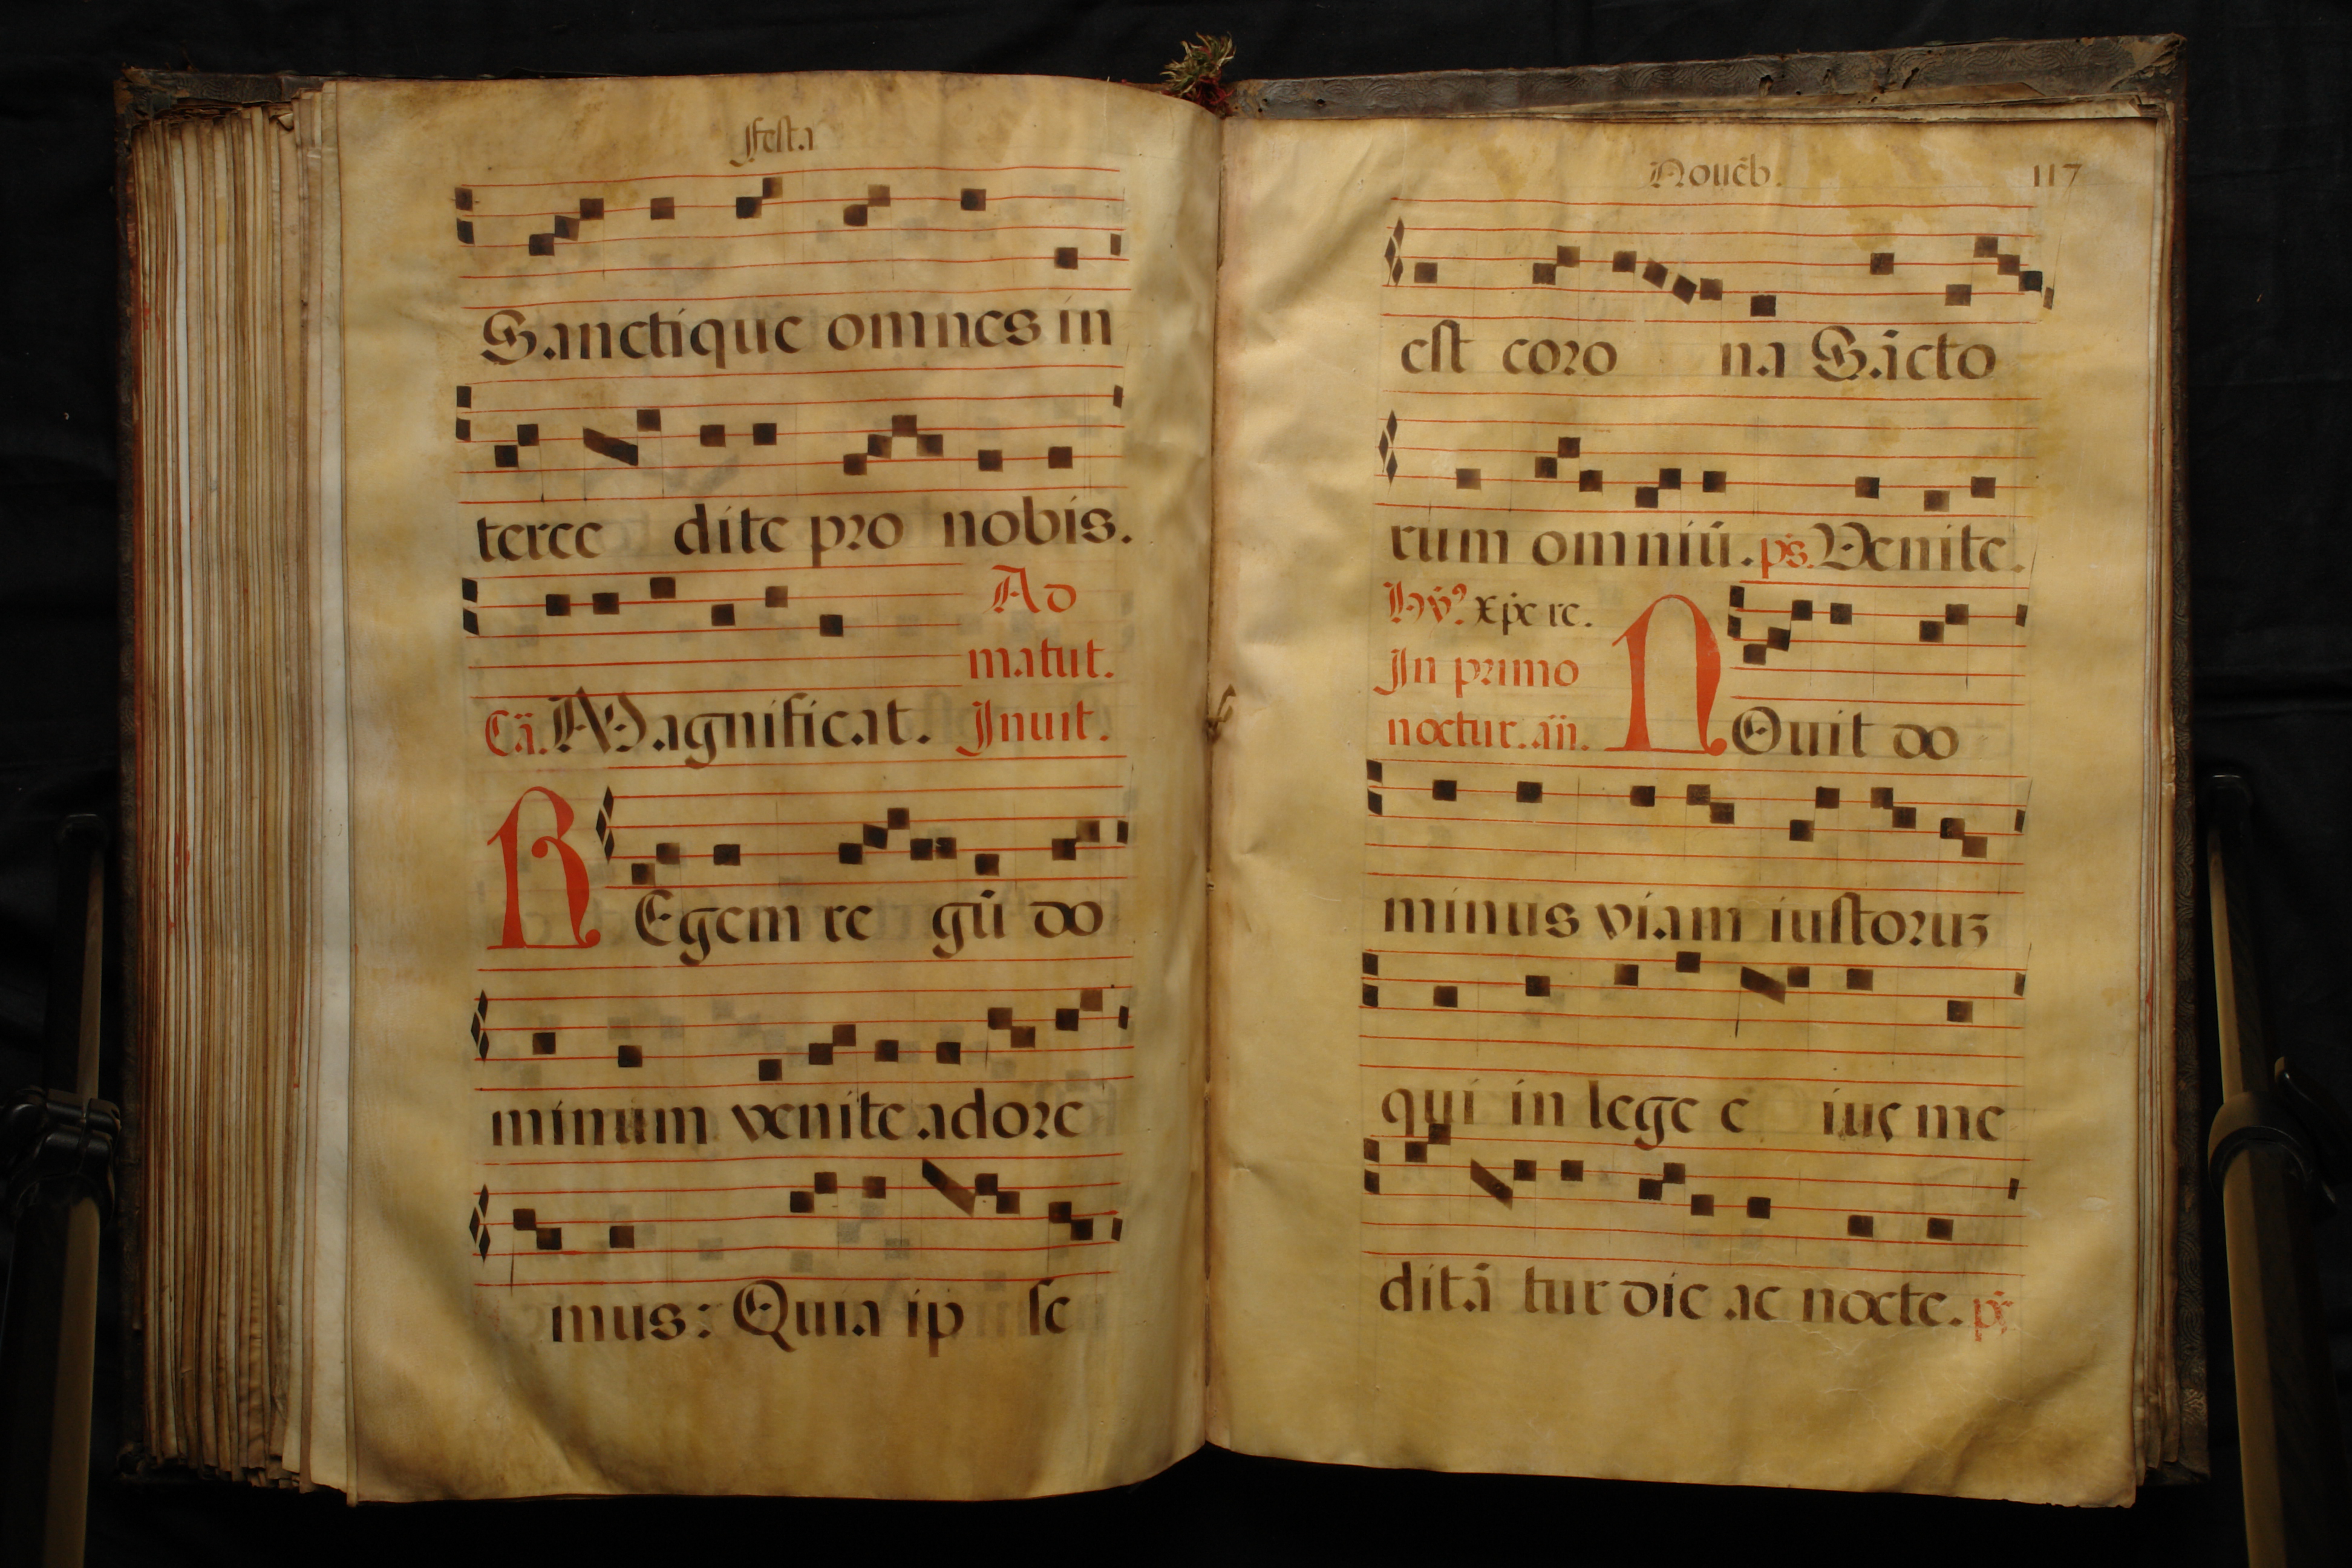 Festa
Sanctique omnes in
terce dite pro nobis.
Ad
matut.
Cā. Magnificat. Inuit.
REgem re gū do
minum venite adore
mus: Quia ip se
Nouēb. 117
est coro na Sācto
rum omniū. ps. Venite.
Hỹ? xp̄e re.
In primo
noctur. añ. NOuit do
minus viam iustoruz
qui in lege e ius me
ditā tur die ac nocte. ps